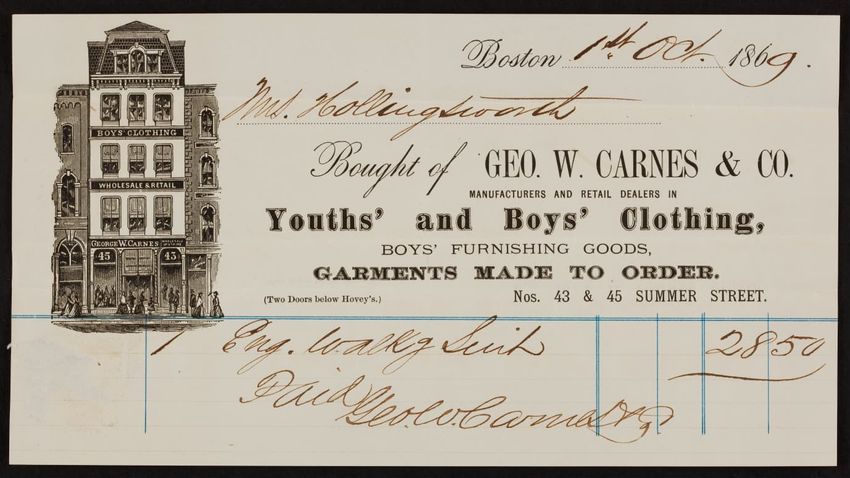 Boston 1st Oct. 1869.
Mrs. Hollingsworth
Bought of GEO. W. CARNES & CO.
MANUFACTURERS AND RETAIL DEALERS IN
Youths' and Boys' Clothing,
BOYS' FURNISHING GOODS,
GARMENTS MADE TO ORDER.
(Two Doors below Hovey's.) Nos. 43 & 45 SUMMER STREET.
BOYS' CLOTHING
WHOLESALE & RETAIL
GEORGE W. CARNES
45 43
1 Eng. Walkg Suit 28 50
Paid
Geo. W. Carnes & Co